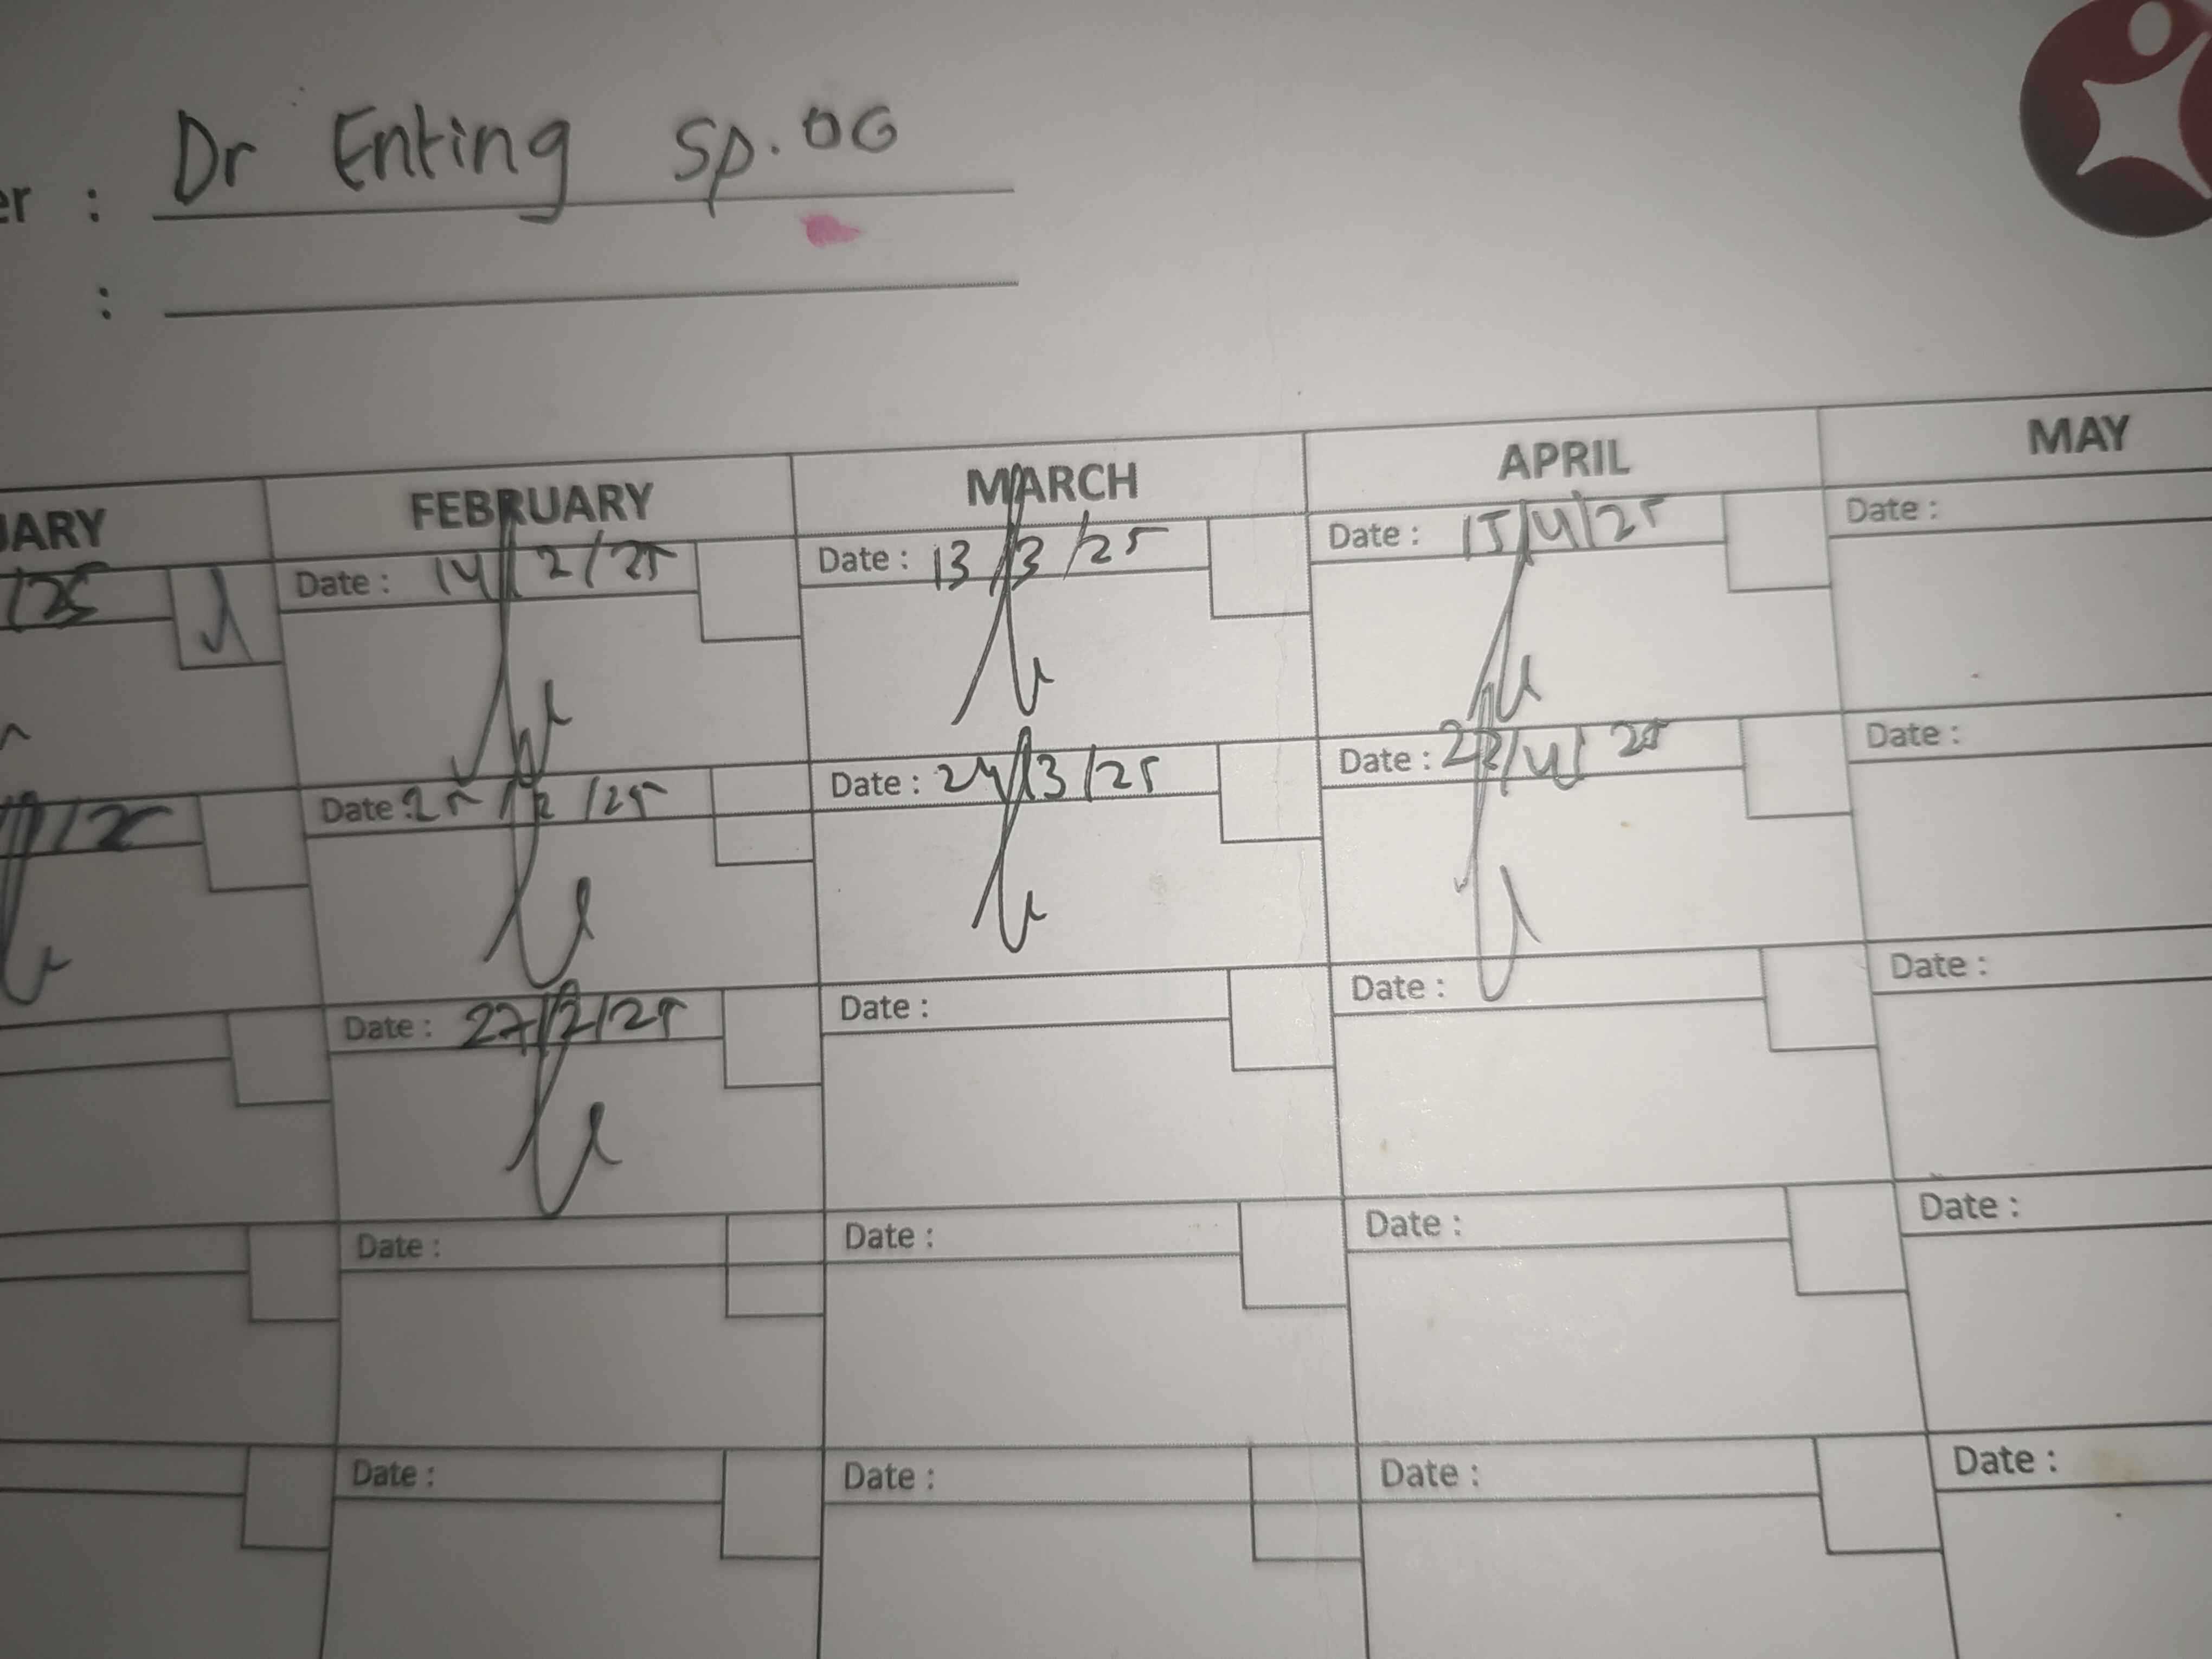 er : Dr Enting Sp.OG
:
UARY FEBRUARY MARCH APRIL MAY
/25 Date : 14/2/25 Date : 13/3/25 Date : 15/4/25 Date :
/25 Date : 25/2/25 Date : 24/3/25 Date : 22/4/25 Date :
Date : 27/2/25 Date : Date : Date :
Date : Date : Date : Date :
Date : Date : Date : Date :